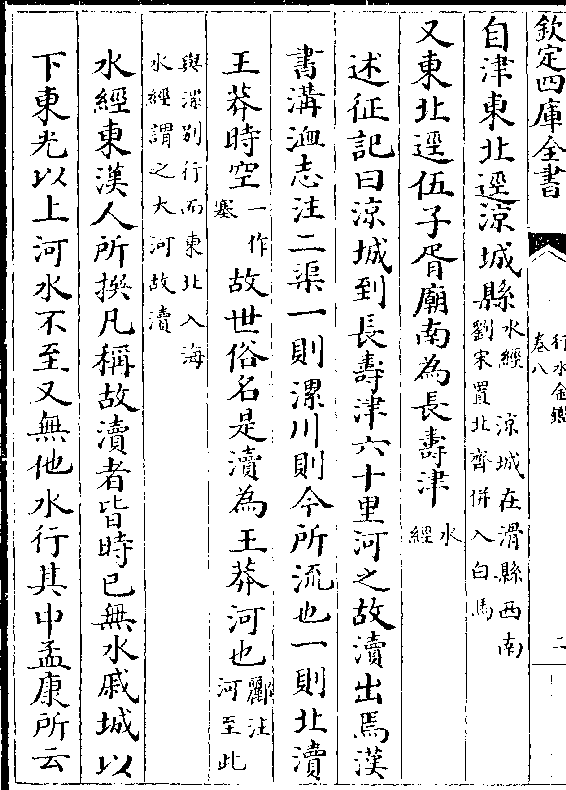 欽定四庫全書
行水金鑑
卷八
二
自津東北逕涼城縣水經 涼城在滑縣西南
劉宋置北齊併入白馬
又東北逕伍子胥廟南為長壽津水
經
述征記曰涼城到長壽津六十里河之故瀆出焉漢
書溝洫志注二渠一則漯川則今所流也一則北瀆
王莽時空一作
塞故世俗名是瀆為王莽河也酈注
河至此
與漯別行而東北入海
水經謂之大河故瀆
水經東漢人所撰凡稱故瀆者皆時已無水戚城以
下東光以上河水不至又無他水行其中孟康所云